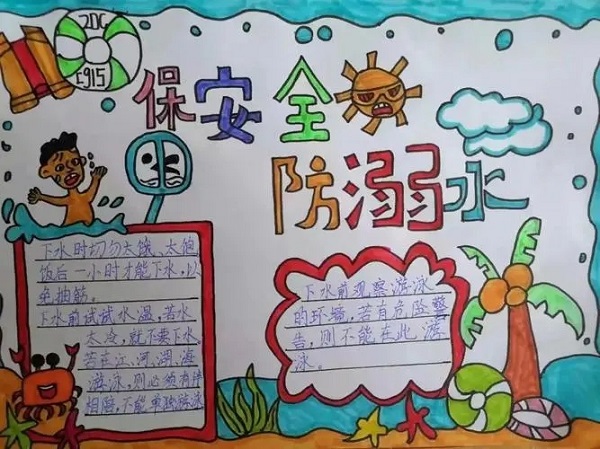 20C
E915
保安全
防溺水
下水时切勿太饿、太饱
饭后一小时才能下水，以
免抽筋。
下水前试试水温，若水
太冷，就不要下水。
若在江、河、湖、海
游泳，则必须有伴
相陪，不能单独游泳
下水前观察游泳
的环境，若有危险警
告，则不能在此游
泳。